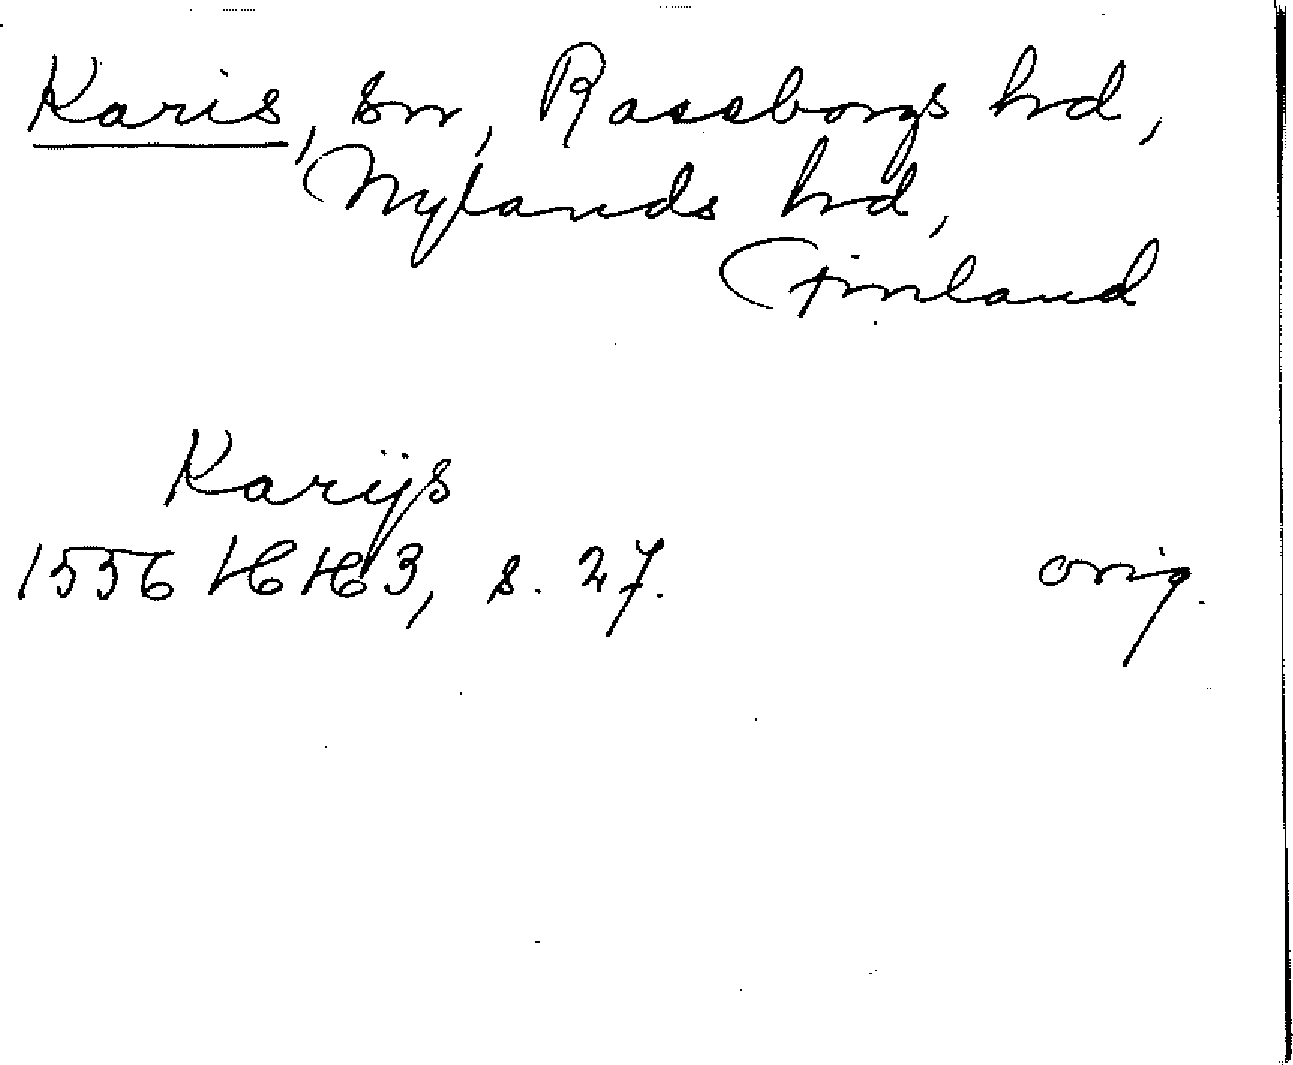 Karis, sn, Raseborgs hd,
Nylands hd,
Finland
Karijs
1556 HH 3, s. 27.
orig.